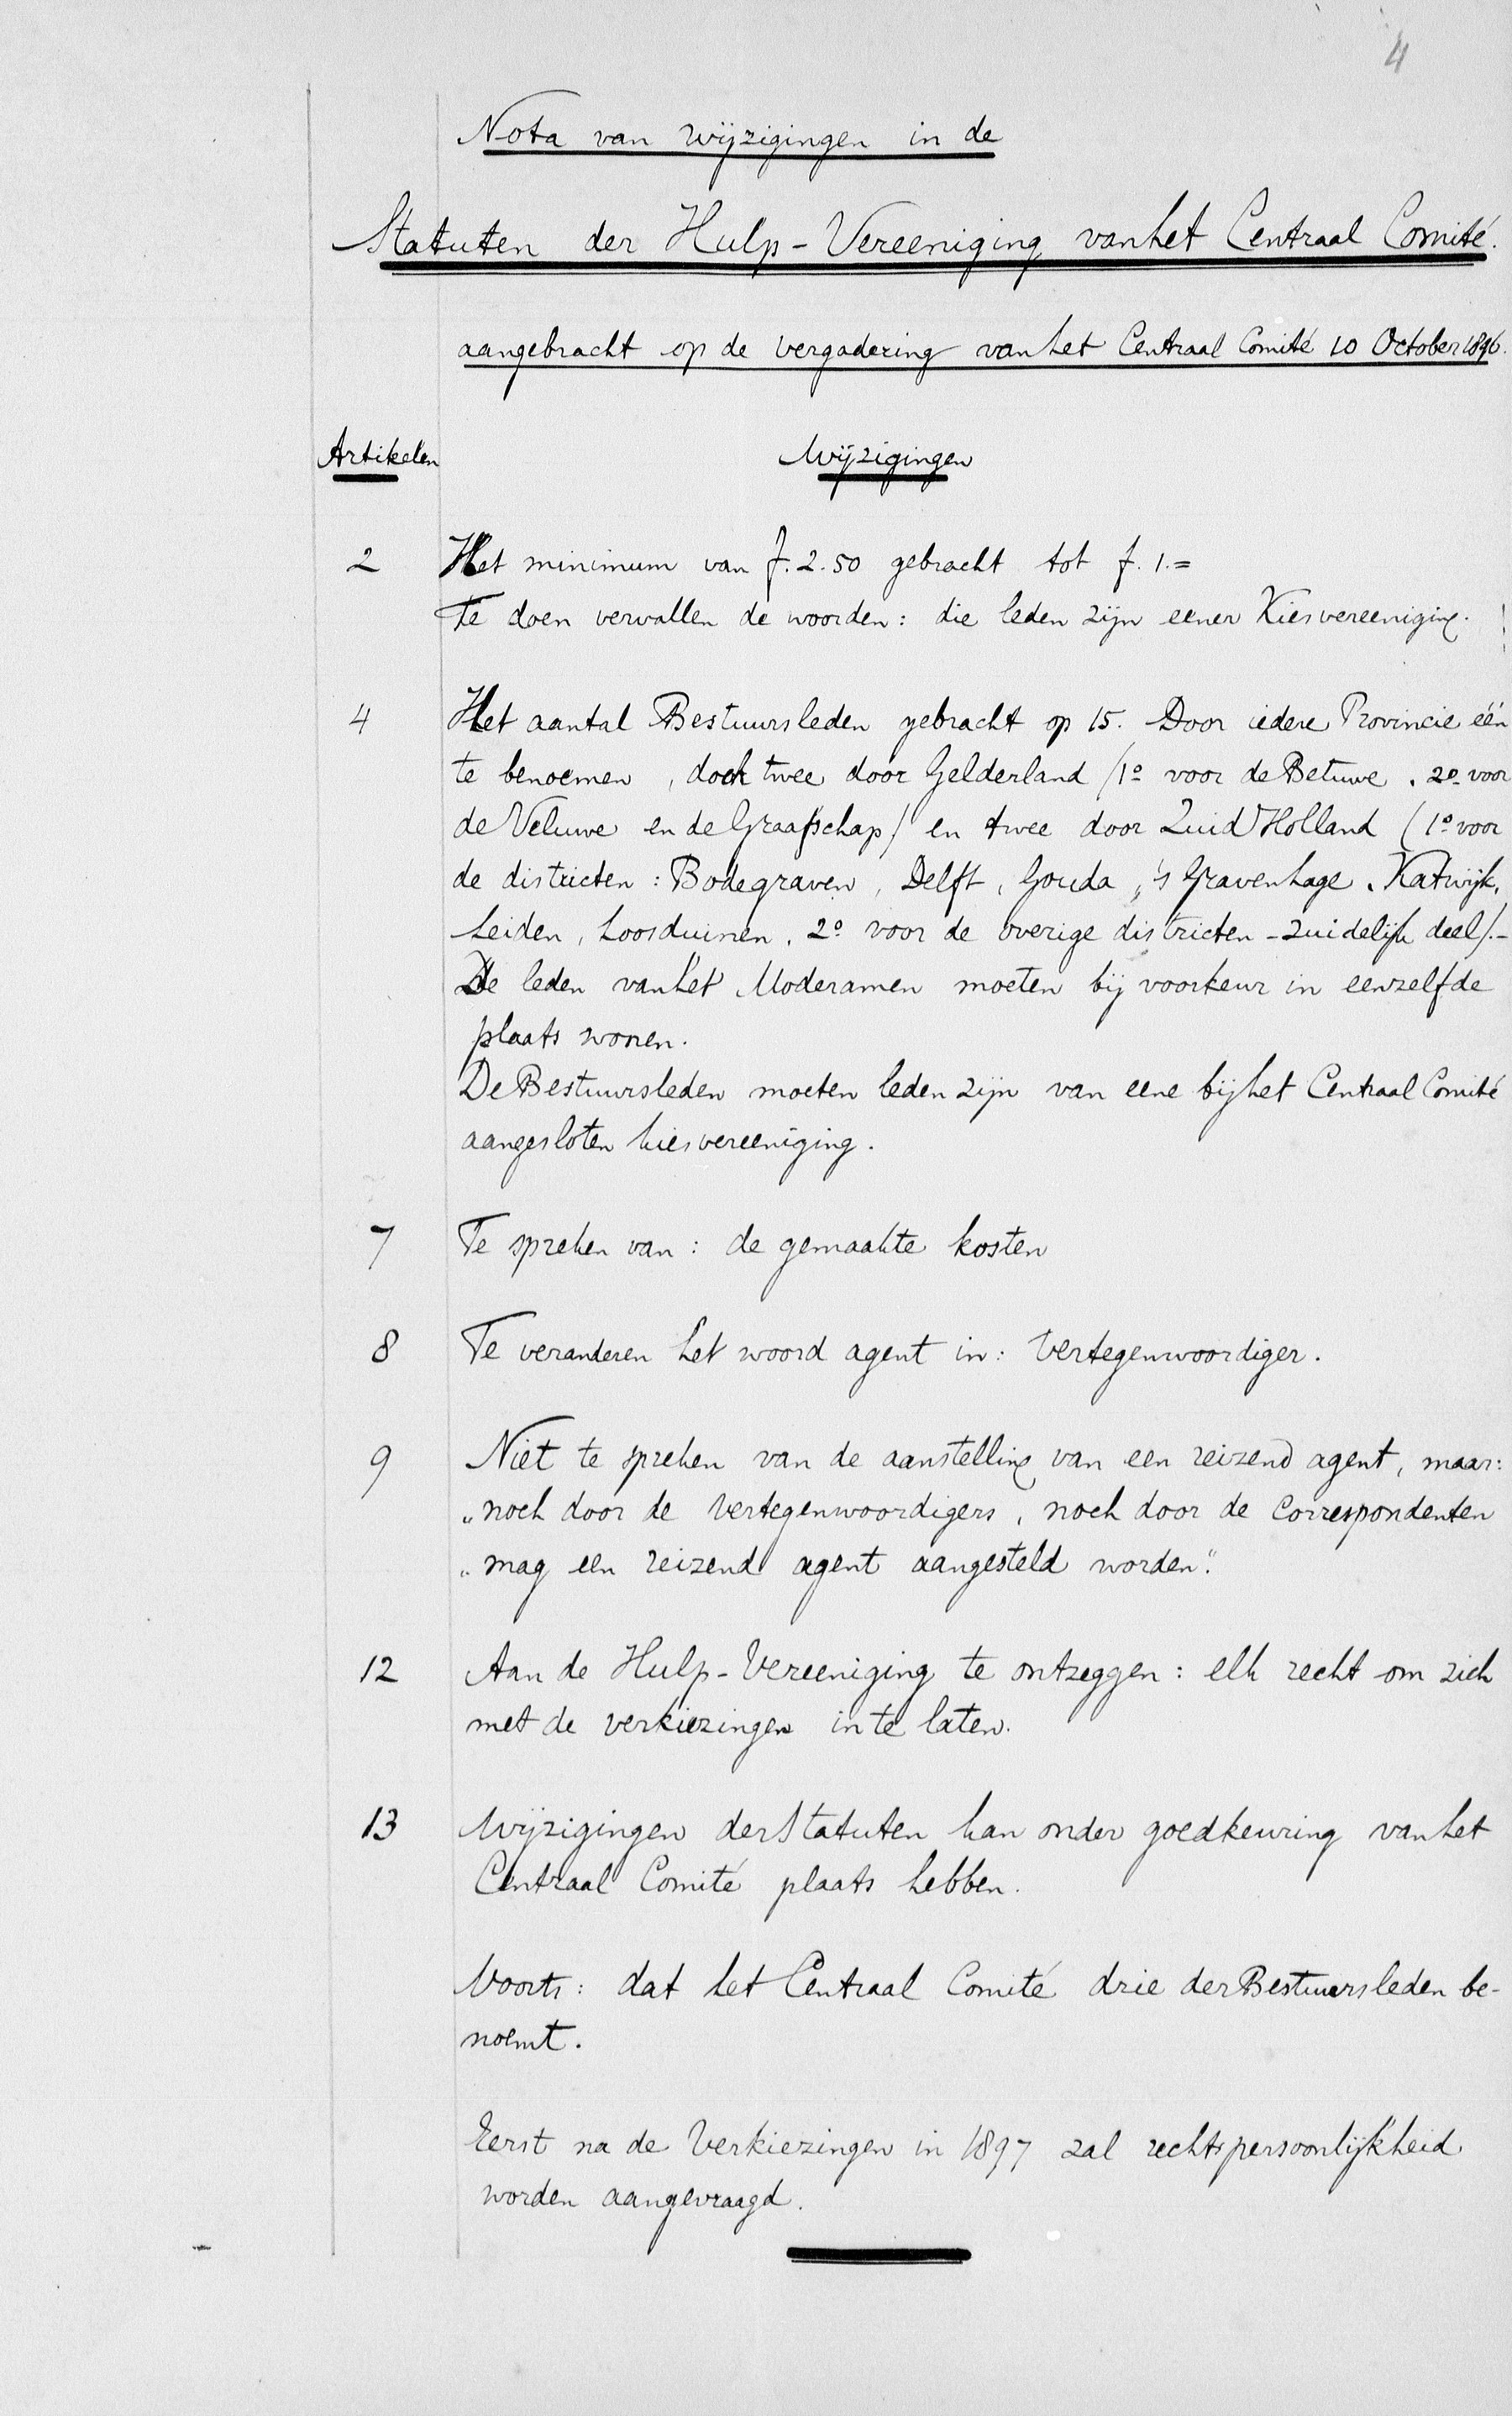 4
Nota van Wijzigingen in de
Statuten der Hulp-Vereeniging van het Centraal Comité.
aangebracht op de vergadering van het Centraal Comité 10 October 1896.
Artikelen Wijzigingen
2 Het minimum van f. 2.50 gebracht tot f. 1.=
Te doen vervallen de woorden: die leden zijn eener Kiesvereeniging.
4 Het aantal Bestuursleden gebracht op 15. Door iedere Provincie één
te benoemen, doch twee door Gelderland (1º voor de Betuwe, 2º voor
de Veluwe en de Graafschap) en twee door Zuid Holland (1º voor
de districten: Bodegraven, Delft, Gouda, 's Gravenhage, Katwijk,
Leiden, Loosduinen, 2º voor de overige districten - zuidelijk deel).-
De leden van het Moderamen moeten bij voorkeur in eenzelfde
plaats wonen.
De Bestuursleden moeten leden zijn van eene bij het Centraal Comité
aangesloten kiesvereeniging.
7 Te spreken van: de gemaakte kosten
8 Te veranderen het woord agent in: Vertegenwoordiger.
9 Niet te spreken van de aanstelling van een reizend agent, maar:
„noch door de Vertegenwoordigers, noch door de Correspondenten
„mag een reizend agent aangesteld worden."
12 Aan de Hulp-Vereeniging te ontzeggen: elk recht om zich
met de verkiezingen in te laten.
13 Wijzigingen der Statuten kan onder goedkeuring van het
Centraal Comité plaats hebben.
Voorts: dat het Centraal Comité drie der Bestuursleden be-
noemt.
Eerst na de Verkiezingen in 1897 zal rechtspersoonlijkheid
worden aangevraagd.